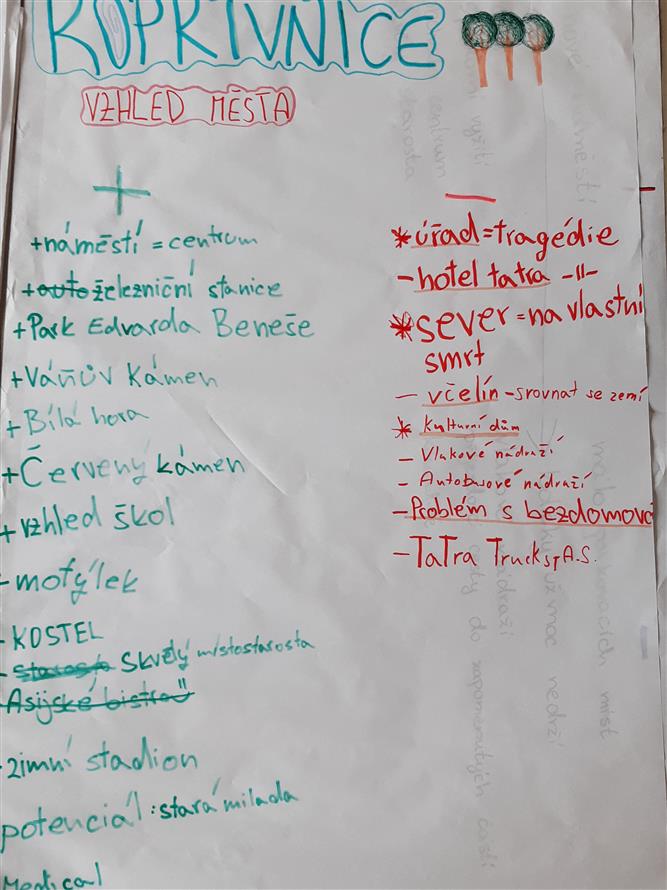 KOPŘIVNICE
VZHLED MĚSTA
+
+náměstí = centrum
+auto železniční stanice
+Park Edvarda Beneše
+Váňův kámen
+Bílá hora
+Červený kámen
+vzhled škol
-motýlek
-KOSTEL
-Starosta Skvělý místostarosta
-Asijské bistro
-zimní stadion
potenciál: stará milada
Medical
—
*úřad=tragédie
-hotel tatra -||-
*sever=na vlastní
smrt
- včelín -srovnat se zemí
* Kulturní dům
- Vlakové nádraží
- Autobusové nádraží
-Problém s bezdomovci
-TaTra Trucks, A.S.